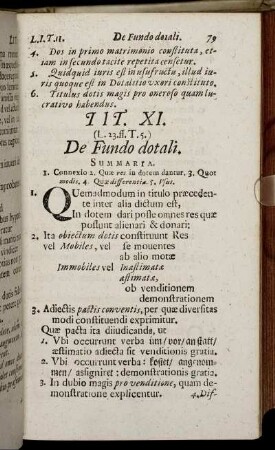 L.I.T.II. De Fundo dotali. 79
4. Dos in primo matrimonio constituta, et-
iam in secundo tacite repetita censetur.
5. Quidquid iuris est in usufructu, illud iu-
ris quoque est in Dotalitio uxori constituto.
6. Titulus dotis magis pro oneroso quam lu-
crativo habendus.
TIT. XI.
(L. 23. ff. T. 5.)
De Fundo dotali.
SUMMARIA.
1. Connexio 2. Quæ res in dotem dantur. 3. Quot
modis. 4. Quæ differentia. 5. Usus.
1. Quemadmodum in titulo præcede-
nte inter alia dictum est,
In dotem dari posse omnes res quæ
possunt alienari & donari;
2. Ita obiectum dotis constituunt Res
vel Mobiles, vel se mouentes
ab alio motæ
Immobiles vel Inæstimatæ
æstimatæ,
ob venditionem
demonstrationem
3. Adiectis pactis conventis, per quæ diversitas
modi constituendi exprimitur.
Quæ pacta ita diiudicanda, ut
1. Vbi occurrunt verba um/ vor/ anstatt/
æstimatio adiecta sit venditionis gratia.
2. Vbi occurrunt verba: kostet/ angenom-
men/ assignetur: demonstrationis gratia.
3. In dubio magis pro venditione, quam de-
monstratione explicentur. 4. Dif-